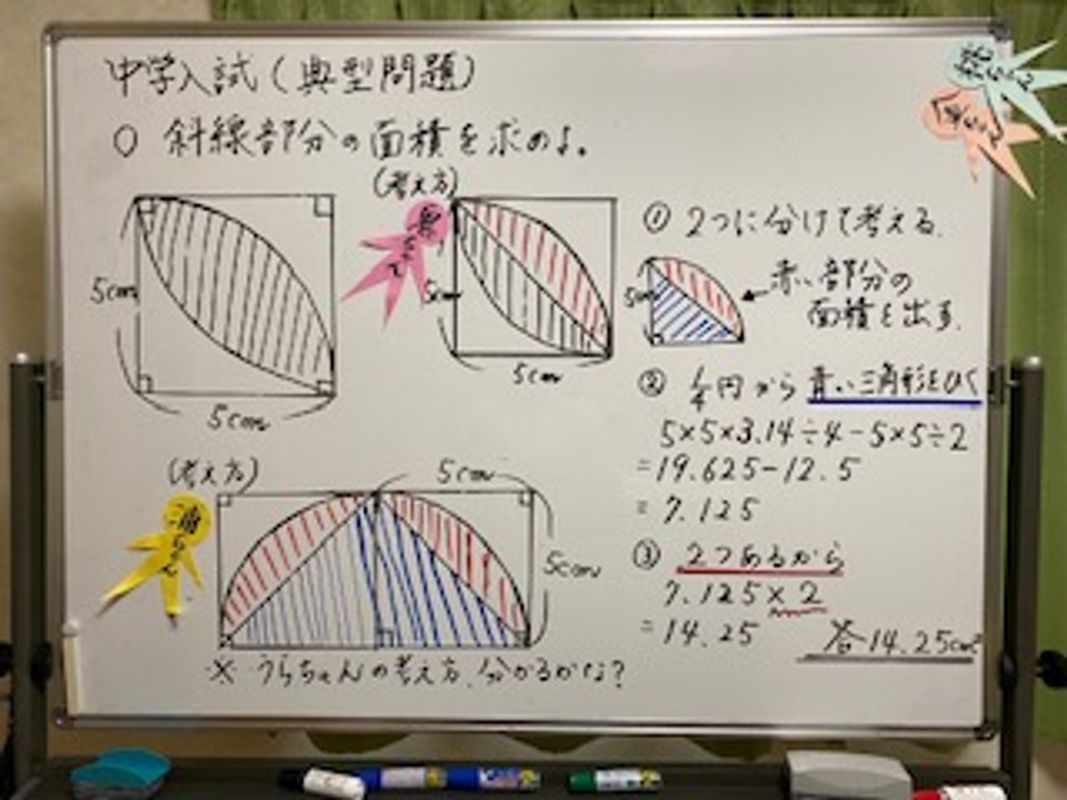 中学入試(典型問題)
○ 斜線部分の面積を求めよ。
5cm
5cm
(考え方)
5cm
5cm
① 2つに分けて考える.
5cm
赤い部分の
面積を出す.
② 1/4円から青い三角形をひく
5×5×3.14÷4-5×5÷2
=19.625-12.5
=7.125
③ 2つあるから
7.125×2
=14.25
答14.25cm²
(考え方)
浦ちゃん
5cm
5cm
※ うらちゃんの考え方.分かるかな?